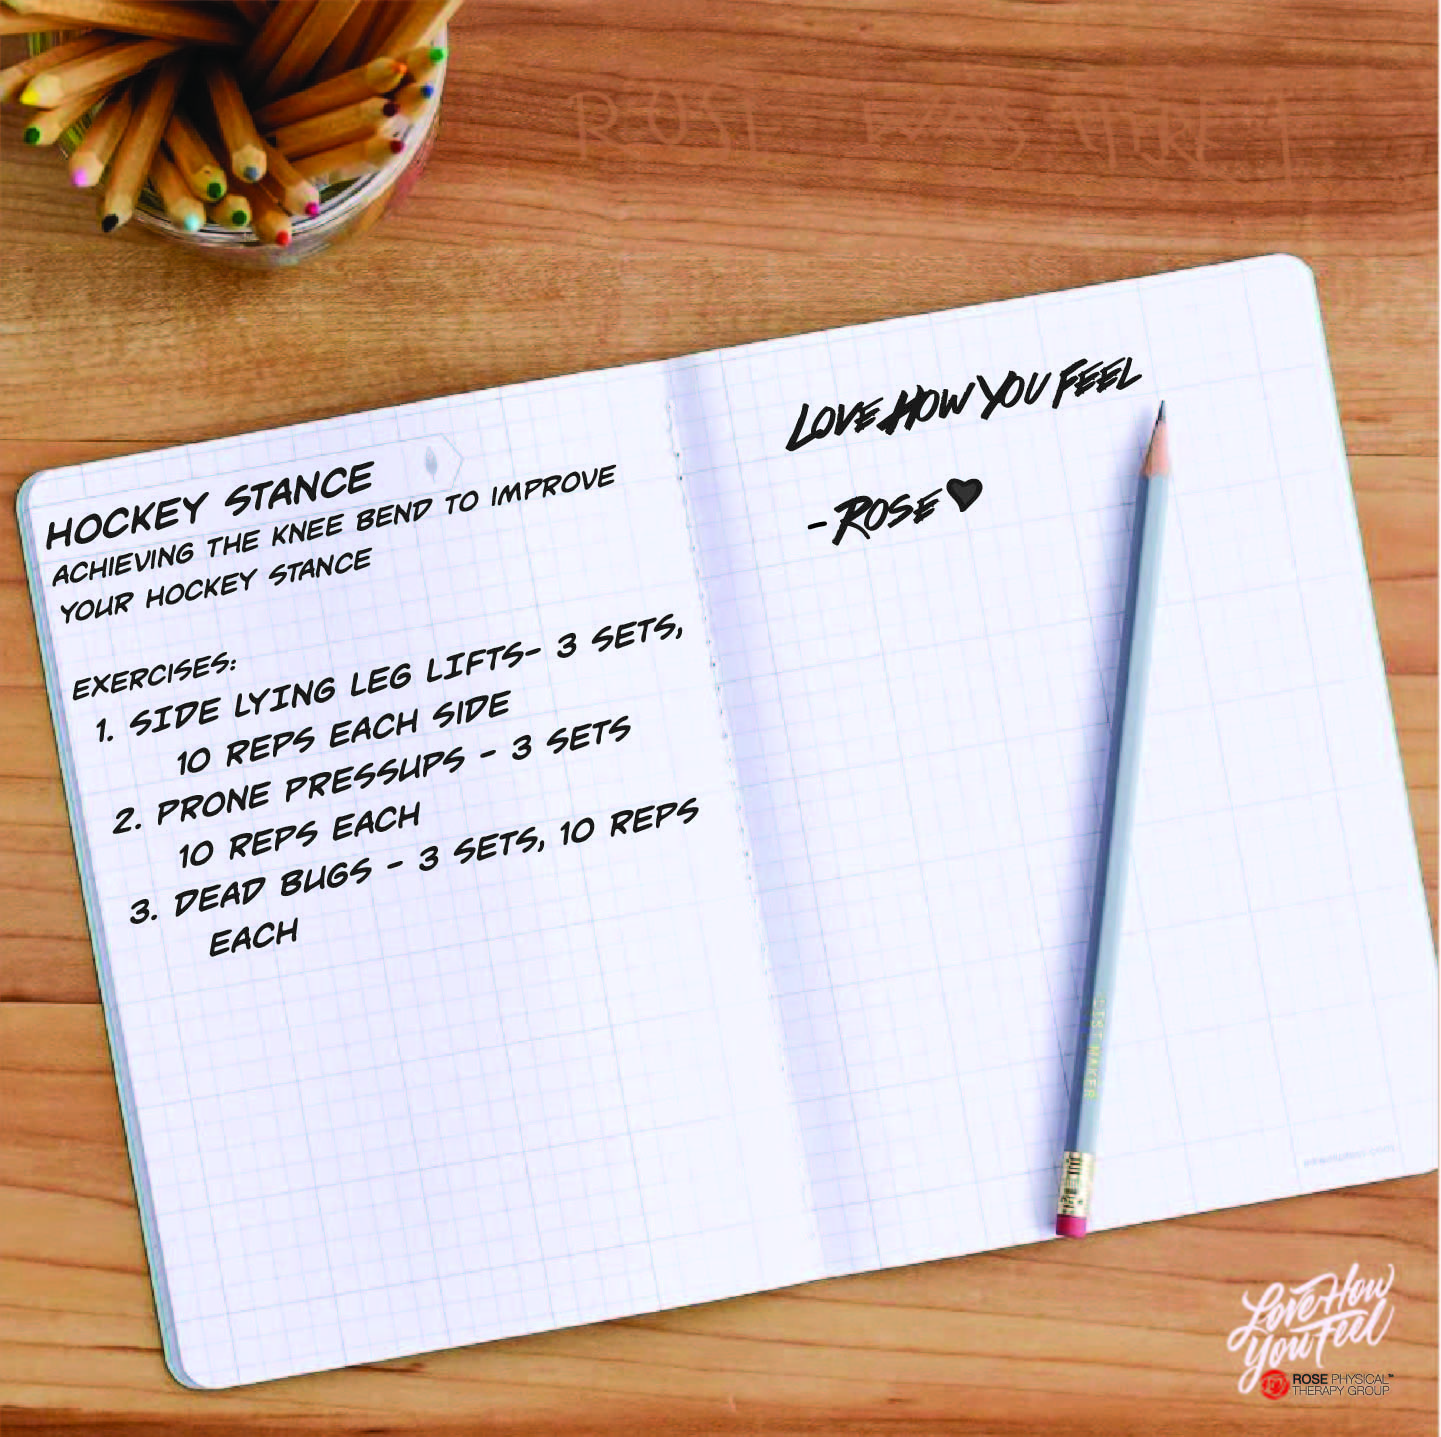 HOCKEY STANCE
ACHIEVING THE KNEE BEND TO IMPROVE
YOUR HOCKEY STANCE
EXERCISES:
1. SIDE LYING LEG LIFTS- 3 SETS,
10 REPS EACH SIDE
2. PRONE PRESSUPS - 3 SETS
10 REPS EACH
3. DEAD BUGS - 3 SETS, 10 REPS
EACH
LOVE HOW YOU FEEL
- ROSE ♥
MAKER
Love How
You Feel
ROSE PHYSICAL™
THERAPY GROUP